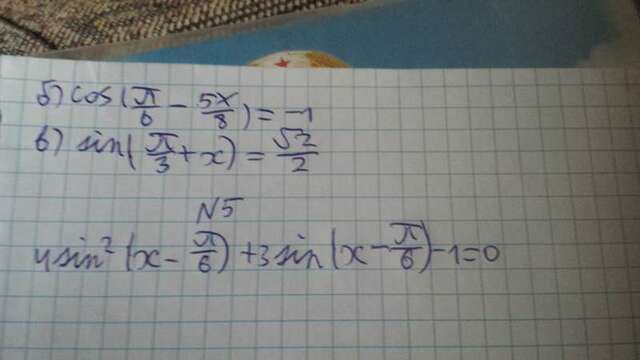 б) cos(π/6 − 5x/8) = −1
в) sin(π/3 + x) = √2/2
N5
4sin²(x − π/6) + 3sin(x − π/6) − 1 = 0